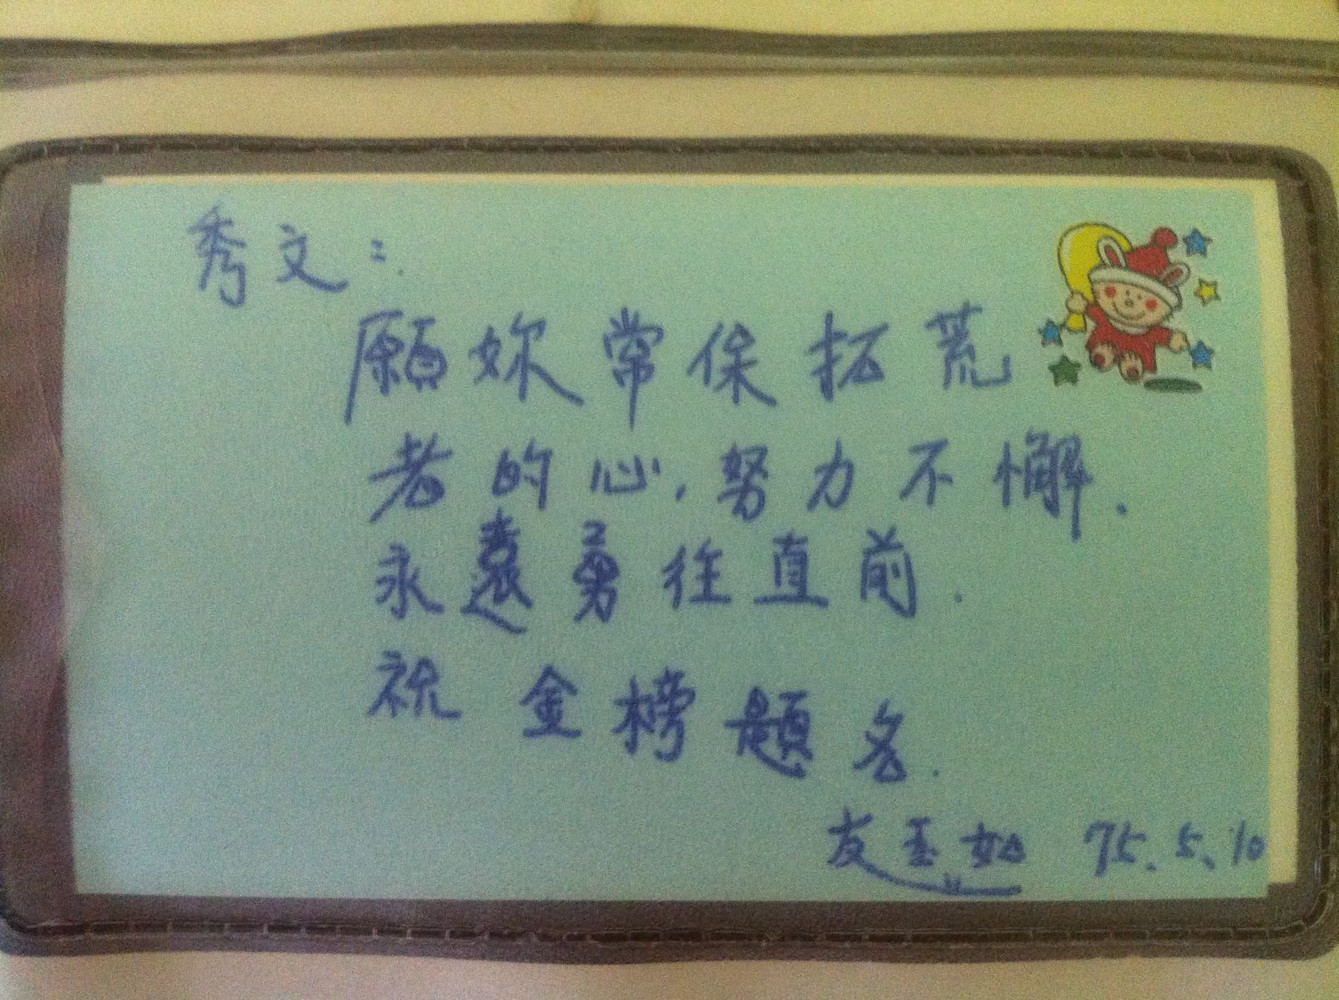 秀文:
願妳常保拓荒
者的心,努力不懈.
永遠勇往直前.
祝 金榜題名.
友玉如 75.5.10